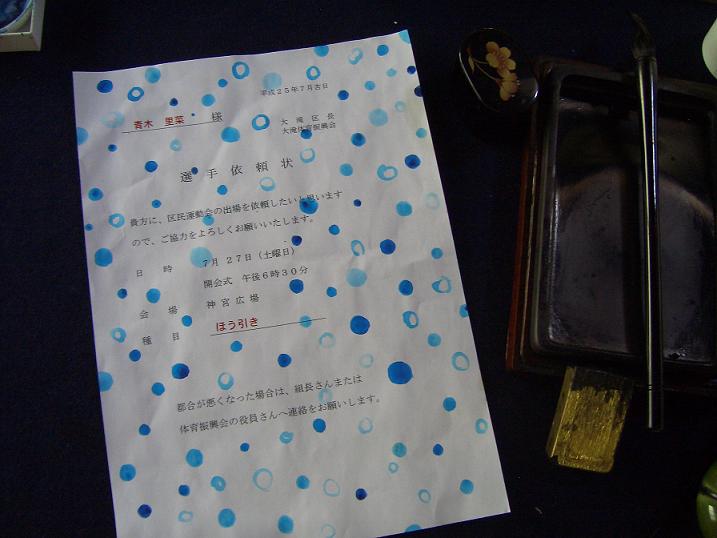 平成25年7月吉日
青木 里菜 様
大滝区長
大滝体育振興会
選手依頼状
貴方に、区民運動会の出場を依頼したいと思います
ので、ご協力をよろしくお願いいたします。
日 時 7月27日（土曜日）
開会式 午後6時30分
会 場 神宮広場
種 目 ほう引き
都合が悪くなった場合は、組長さんまたは
体育振興会の役員さんへ連絡をお願いします。